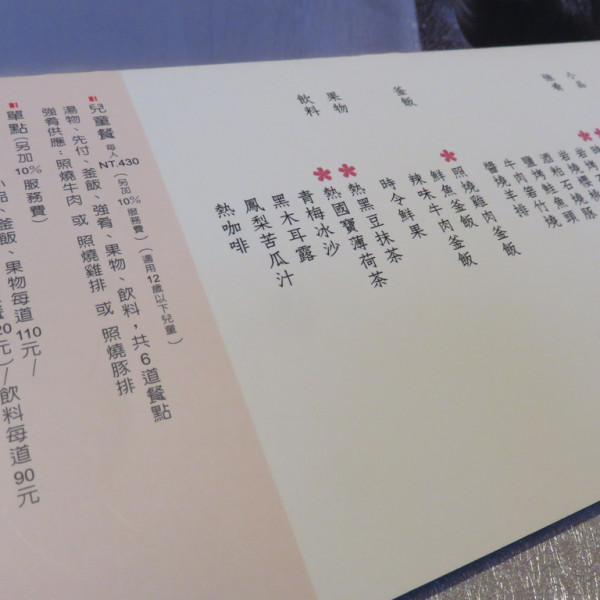 小品
強肴
酒粕石鯛魚燒
鹽烤鮭竹
牛肉釜
醬燒羊排
釜飯
照燒雞肉釜飯
鮮魚釜飯
辣味牛肉釜飯
果物
時令鮮果
飲料
熱黑豆抹茶
熱國寶薄荷茶
青梅冰沙
黑木耳露
鳳梨苦瓜汁
熱咖啡
兒童餐 每人 NT.430 (另加10%服務費) (適用12歲以下兒童)
湯物、先付、釜飯、強肴、果物、飲料,共6道餐點
強肴供應:照燒牛肉 或 照燒雞排 或 照燒豚排
單點 (另加10%服務費)
小品、釜飯、果物每道110元/
20元)/飲料每道90元